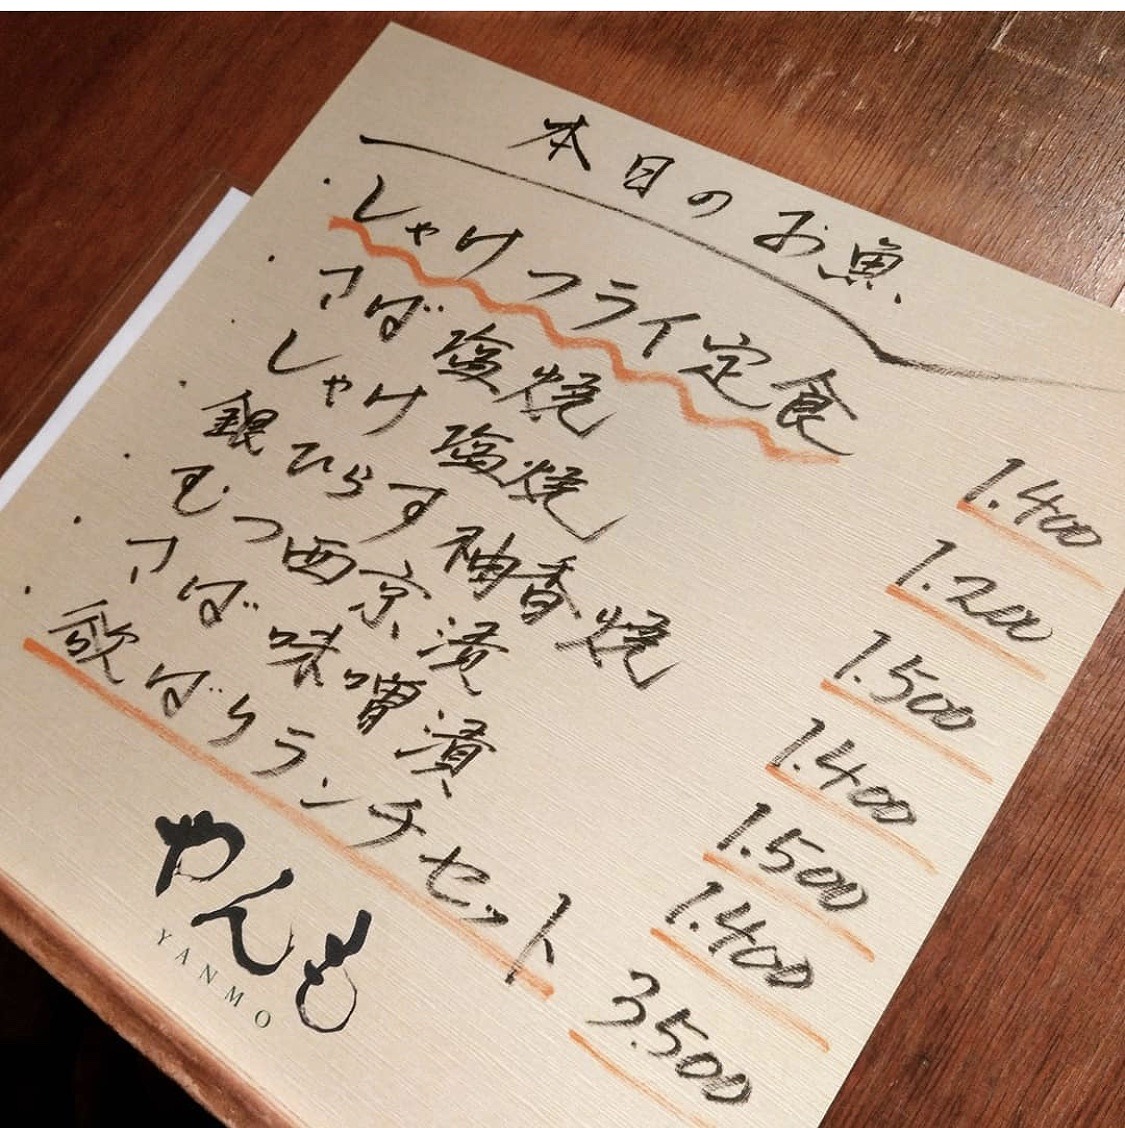 本日のお魚
・しゃけフライ定食 1.400
・さば塩焼 1.200
・しゃけ塩焼 1.500
・銀ひらす柚香焼 1.400
・むつ西京漬 1.500
・さば味噌漬 1.400
・歌ばりランチセット 3.500
やんも
YANMO